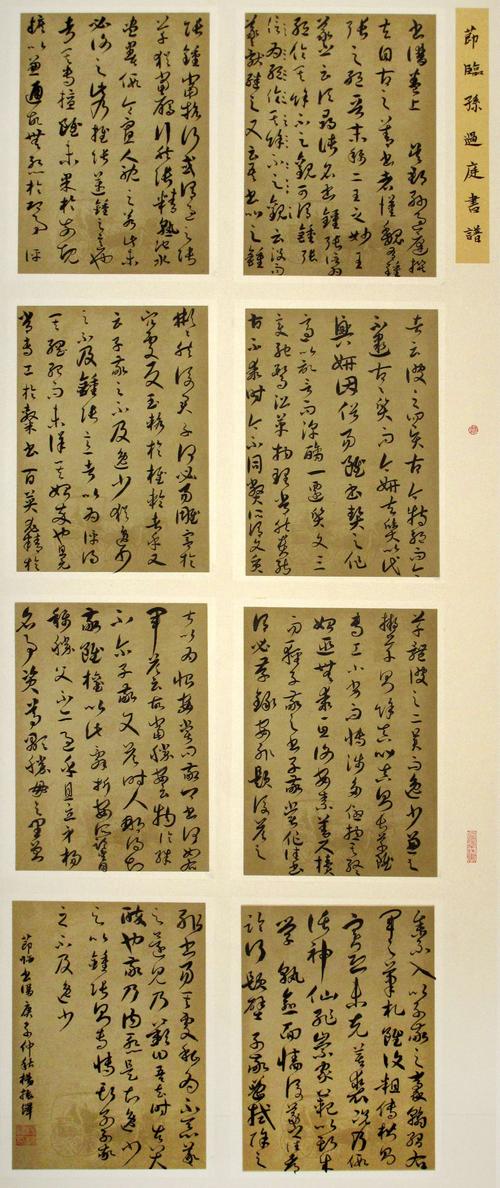 節臨孫過庭書譜
書譜卷上 吳郡孫過庭撰
夫自古之善書者漢魏有鍾
張之絕晉末稱二王之妙王
羲之云頃尋諸名書鍾張信
為絕倫其餘不足觀可謂鍾張
信為絕倫其餘不足觀云沒而
羲獻繼之又云吾書比之鍾
張鍾當抗行或謂過之張
草猶當雁行然張精熟池水
盡墨假令寡人耽之若此未
必謝之此乃推張邁鍾之意也
考其專擅雖未果於前規
摭以兼通故無慚於即事評
者云彼之四賢古今特絕而今
不逮古古質而今妍夫質以代
興妍因俗易雖書契之作
適以記言而淳醨一遷質文三
變馳騖沿革物理常然貴能
古不乖時今不同弊所謂文質
彬彬然後君子何必易雕宮於
穴處反玉輅於椎輪者乎又
云子敬之不及逸少猶逸少
之不及鍾張意者以為評得
其綱紀而未詳其始卒也且元
常專工於隸書百英尤精於
草體彼之二美而逸少兼之
擬草則餘真比真則長草雖
專工小劣而博涉多優總其終
始匪無乖互謝安素善尺牘
而輕子敬之書子敬嘗作佳書
與之謂必存錄安輒題後答之
甚以為恨安嘗問敬卿書何如右
軍答云故當勝安云物論殊
不爾子敬又答時人那得知
敬雖權以此辭折安所鑒自
稱勝父不亦過乎且立身揚
名事資尊顯勝母之里曾
參不入以子敬之豪翰紹右
軍之筆札雖復粗傳楷則
實恐未克箕裘況乃假
託神仙恥崇家範以斯成
學孰愈面牆後羲之往都
臨行題壁子敬密拭除之
輒書易其處私為不惡羲
之還見乃歎曰吾去時真大
醉也敬乃內慚是知逸少
之比鍾張則專博斯別子敬
之不及逸少
節臨書譜庚子仲秋楊振